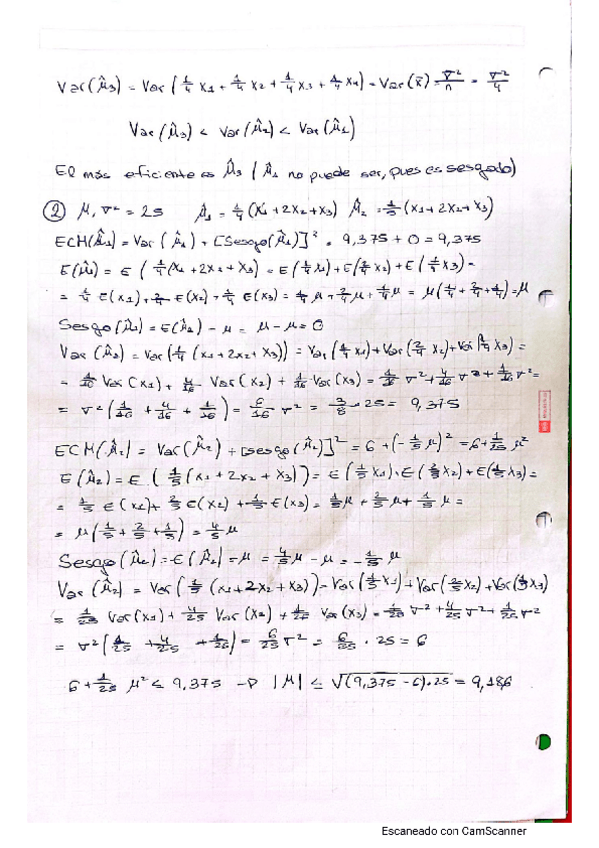 Var(μ̂3) = Var(1/4 x1 + 1/4 x2 + 1/4 x3 + 1/4 x4) = Var(x̄) = σ²/n = σ²/4
Var(μ̂3) < Var(μ̂2) < Var(μ̂1)
El más eficiente es μ̂3 (μ̂1 no puede ser, pues es sesgado)
② μ, σ² = 25 μ̂1 = 1/4 (x1 + 2x2 + x3) μ̂2 = 1/5 (x1 + 2x2 + x3)
ECM(μ̂1) = Var(μ̂1) + [Sesgo(μ̂1)]² = 9,375 + 0 = 9,375
E(μ̂1) = E(1/4 (x1 + 2x2 + x3)) = E(1/4 x1) + E(2/4 x2) + E(1/4 x3) =
= 1/4 E(x1) + 2/4 E(x2) + 1/4 E(x3) = 1/4 μ + 2/4 μ + 1/4 μ = μ(1/4 + 2/4 + 1/4) = μ
Sesgo(μ̂1) = E(μ̂1) - μ = μ - μ = 0
Var(μ̂1) = Var(1/4 (x1 + 2x2 + x3)) = Var(1/4 x1) + Var(2/4 x2) + Var(1/4 x3) =
= 1/16 Var(x1) + 4/16 Var(x2) + 1/16 Var(x3) = 1/16 σ² + 4/16 σ² + 1/16 σ² =
= σ² (1/16 + 4/16 + 1/16) = 6/16 σ² = 3/8 · 25 = 9,375
ECM(μ̂2) = Var(μ̂2) + [sesgo(μ̂2)]² = 6 + (-1/5 μ)² = 6 + 1/25 μ²
E(μ̂2) = E(1/5 (x1 + 2x2 + x3)) = E(1/5 x1) + E(2/5 x2) + E(1/5 x3) =
= 1/5 E(x1) + 2/5 E(x2) + 1/5 E(x3) = 1/5 μ + 2/5 μ + 1/5 μ =
= μ(1/5 + 2/5 + 1/5) = 4/5 μ
Sesgo(μ̂2) = E(μ̂2) - μ = 4/5 μ - μ = -1/5 μ
Var(μ̂2) = Var(1/5 (x1 + 2x2 + x3)) = Var(1/5 x1) + Var(2/5 x2) + Var(1/5 x3)
= 1/25 Var(x1) + 4/25 Var(x2) + 1/25 Var(x3) = 1/25 σ² + 4/25 σ² + 1/25 σ²
= σ² (1/25 + 4/25 + 1/25) = 6/25 σ² = 6/25 · 25 = 6
6 + 1/25 μ² ≤ 9,375 → |μ| ≤ √(9,375 - 6)·25 = 9,186
Escaneado con CamScanner